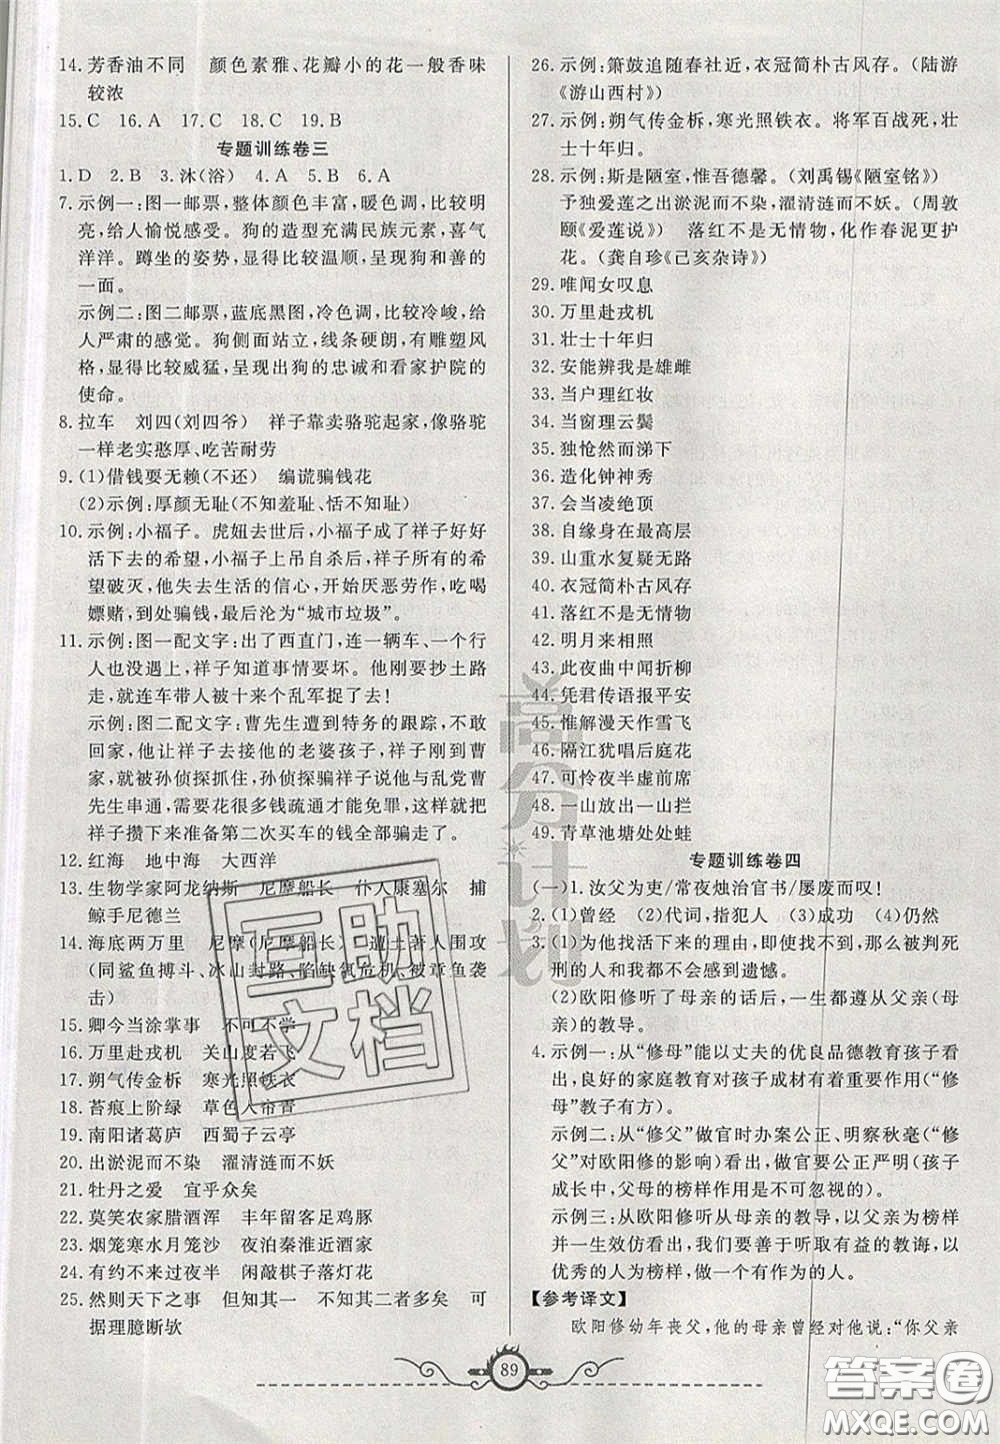 14. 芳香油不同　颜色素雅、花瓣小的花一般香味
较浓
15. C　16. A　17. C　18. C　19. B
专题训练卷三
1. D　2. B　3. 沐(浴)　4. A　5. B　6. A
7. 示例一:图一邮票,整体颜色丰富,暖色调,比较明
亮,给人愉悦感受。狗的造型充满民族元素,喜气
洋洋。蹲坐的姿势,显得比较温顺,呈现狗和善的
一面。
示例二:图二邮票,蓝底黑图,冷色调,比较冷峻,给
人严肃的感觉。狗侧面站立,线条硬朗,有雕塑风
格,显得比较威猛,呈现出狗的忠诚和看家护院的
使命。
8. 拉车　刘四(刘四爷)　祥子靠卖骆驼起家,像骆驼
一样老实憨厚、吃苦耐劳
9. (1)借钱耍无赖(不还)　编谎骗钱花
(2)示例:厚颜无耻(不知羞耻、恬不知耻)
10. 示例:小福子。虎妞去世后,小福子成了祥子好好
活下去的希望,小福子上吊自杀后,祥子所有的希
望破灭,他失去生活的信心,开始厌恶劳作,吃喝
嫖赌,到处骗钱,最后沦为“城市垃圾”。
11. 示例:图一配文字:出了西直门,连一辆车、一个行
人也没遇上,祥子知道事情要坏。他刚抄上土路
走,就连车带人被十来个乱军捉了去!
示例:图二配文字:曹先生遭到特务的跟踪,不敢
回家,他让祥子去接他的老婆孩子,祥子刚到曹
家,被孙侦探抓住,孙侦探骗祥子说他与乱党曹
先生串通,需要花很多钱疏通才能免罪,就把
祥子攒下来准备第二次买车的钱全部骗走了。
12. 红海　地中海　大西洋
13. 生物学家阿龙纳斯　尼摩船长　仆人康塞尔　捕
鲸手尼德兰
14. 海底两万里　尼摩(尼摩船长)　遭土著人围攻
(同鲨鱼搏斗、冰山封路、陷缺氧危机、被章鱼袭
击)
15. 卿今当涂掌事　不可不学
16. 万里赴戎机　关山度若飞
17. 朔气传金柝　寒光照铁衣
18. 苔痕上阶绿　草色入帘青
19. 南阳诸葛庐　西蜀子云亭
20. 出淤泥而不染　濯清涟而不妖
21. 牡丹之爱　宜乎众矣
22. 莫笑农家腊酒浑　丰年留客足鸡豚
23. 烟笼寒水月笼沙　夜泊秦淮近酒家
24. 有约不来过夜半　闲敲棋子落灯花
25. 然则天下之事　但知其一　不知其二者多矣　可
据理臆断欤
26. 示例:箫鼓追随春社近,衣冠简朴古风存。(陆游
《游山西村》)
27. 示例:朔气传金柝,寒光照铁衣。将军百战死,壮
士十年归。
28. 示例:斯是陋室,惟吾德馨。(刘禹锡《陋室铭》)
予独爱莲之出淤泥而不染,濯清涟而不妖。(周敦
颐《爱莲说》)　落红不是无情物,化作春泥更护
花。(龚自珍《己亥杂诗》)
29. 唯闻女叹息
30. 万里赴戎机
31. 壮士十年归
32. 安能辨我是雄雌
33. 当户理红妆
34. 当窗理云鬓
35. 独怆然而涕下
36. 造化钟神秀
37. 会当凌绝顶
38. 自缘身在最高层
39. 山重水复疑无路
40. 衣冠简朴古风存
41. 落红不是无情物
42. 明月来相照
43. 此夜曲中闻折柳
44. 凭君传语报平安
45. 惟解漫天作雪飞
46. 隔江犹唱后庭花
47. 可怜夜半虚前席
48. 一山放出一山拦
49. 青草池塘处处蛙
专题训练卷四
(一)1. 汝父为吏/常夜烛治官书/屡废而叹!
2. (1)曾经　(2)代词,指犯人　(3)成功　(4)仍然
3. (1)为他找活下来的理由,却办不到,那么被判死
刑的人和我都不会感到遗憾。
(2)欧阳修听了母亲的话后,一生都遵从父亲(母
亲)的教导。
4. 示例一:从“修母”能以丈夫的优良品德教育孩子看
出,良好的家庭教育对孩子成材有着重要作用(“修
母”教子有方)。
示例二:从“修父”做官时办案公正、明察秋毫(“修
父”对欧阳修的影响)看出,做官要公正严明(孩子
成长中,父母的榜样作用是不可忽视的)。
示例三:从欧阳修听从母亲的教导,以父亲为榜样
并一生效仿看出,我们要善于听取有益的教诲,以
优秀的人为榜样,做一个有作为的人。
【参考译文】
欧阳修幼年丧父,他的母亲曾经对他说:“你父亲
89
高分计划
互助
文档
答案圈
MXQE.COM